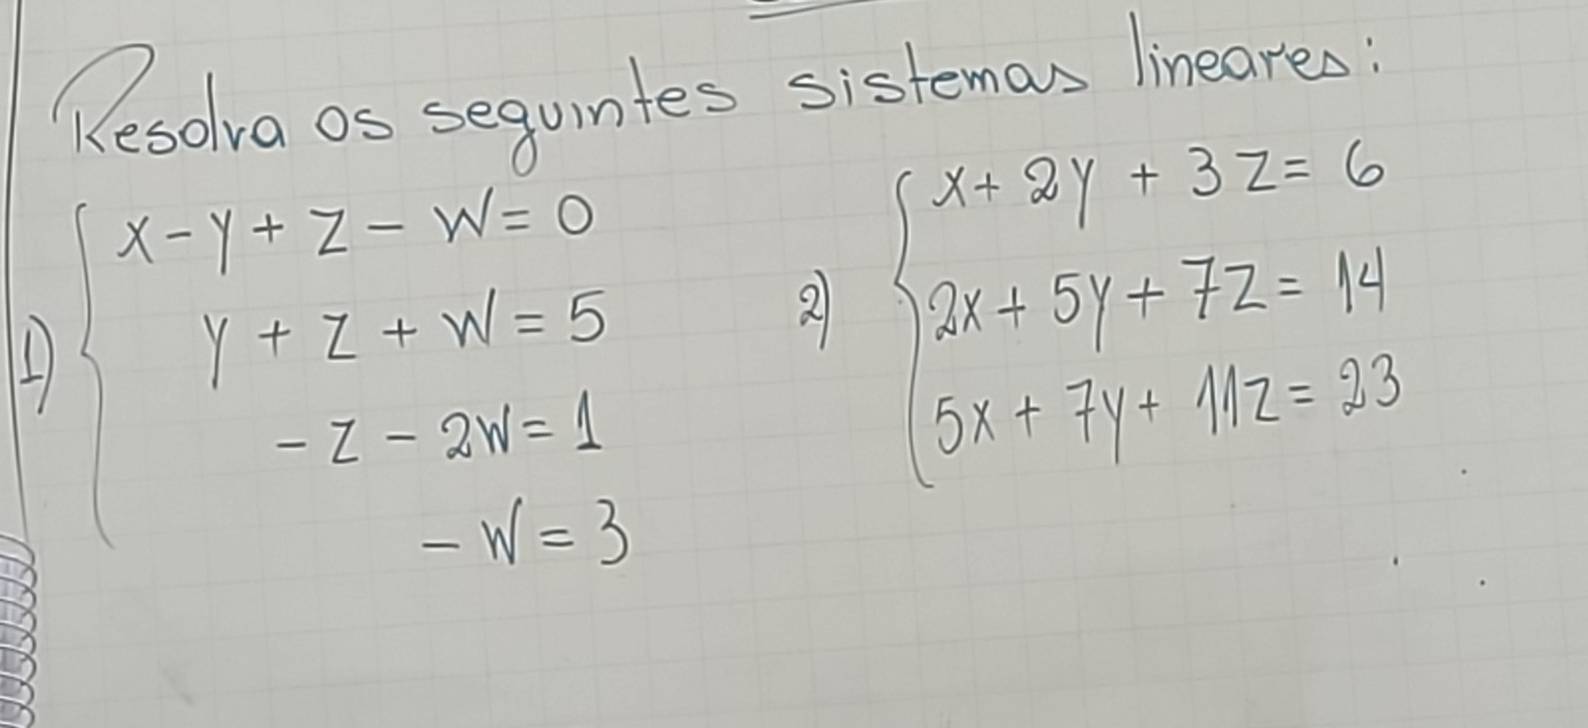 Resolva os seguintes sistemas lineares:
1) x - y + z - w = 0
y + z + w = 5
- z - 2w = 1
- w = 3
2) x + 2y + 3z = 6
2x + 5y + 7z = 14
5x + 7y + 11z = 23